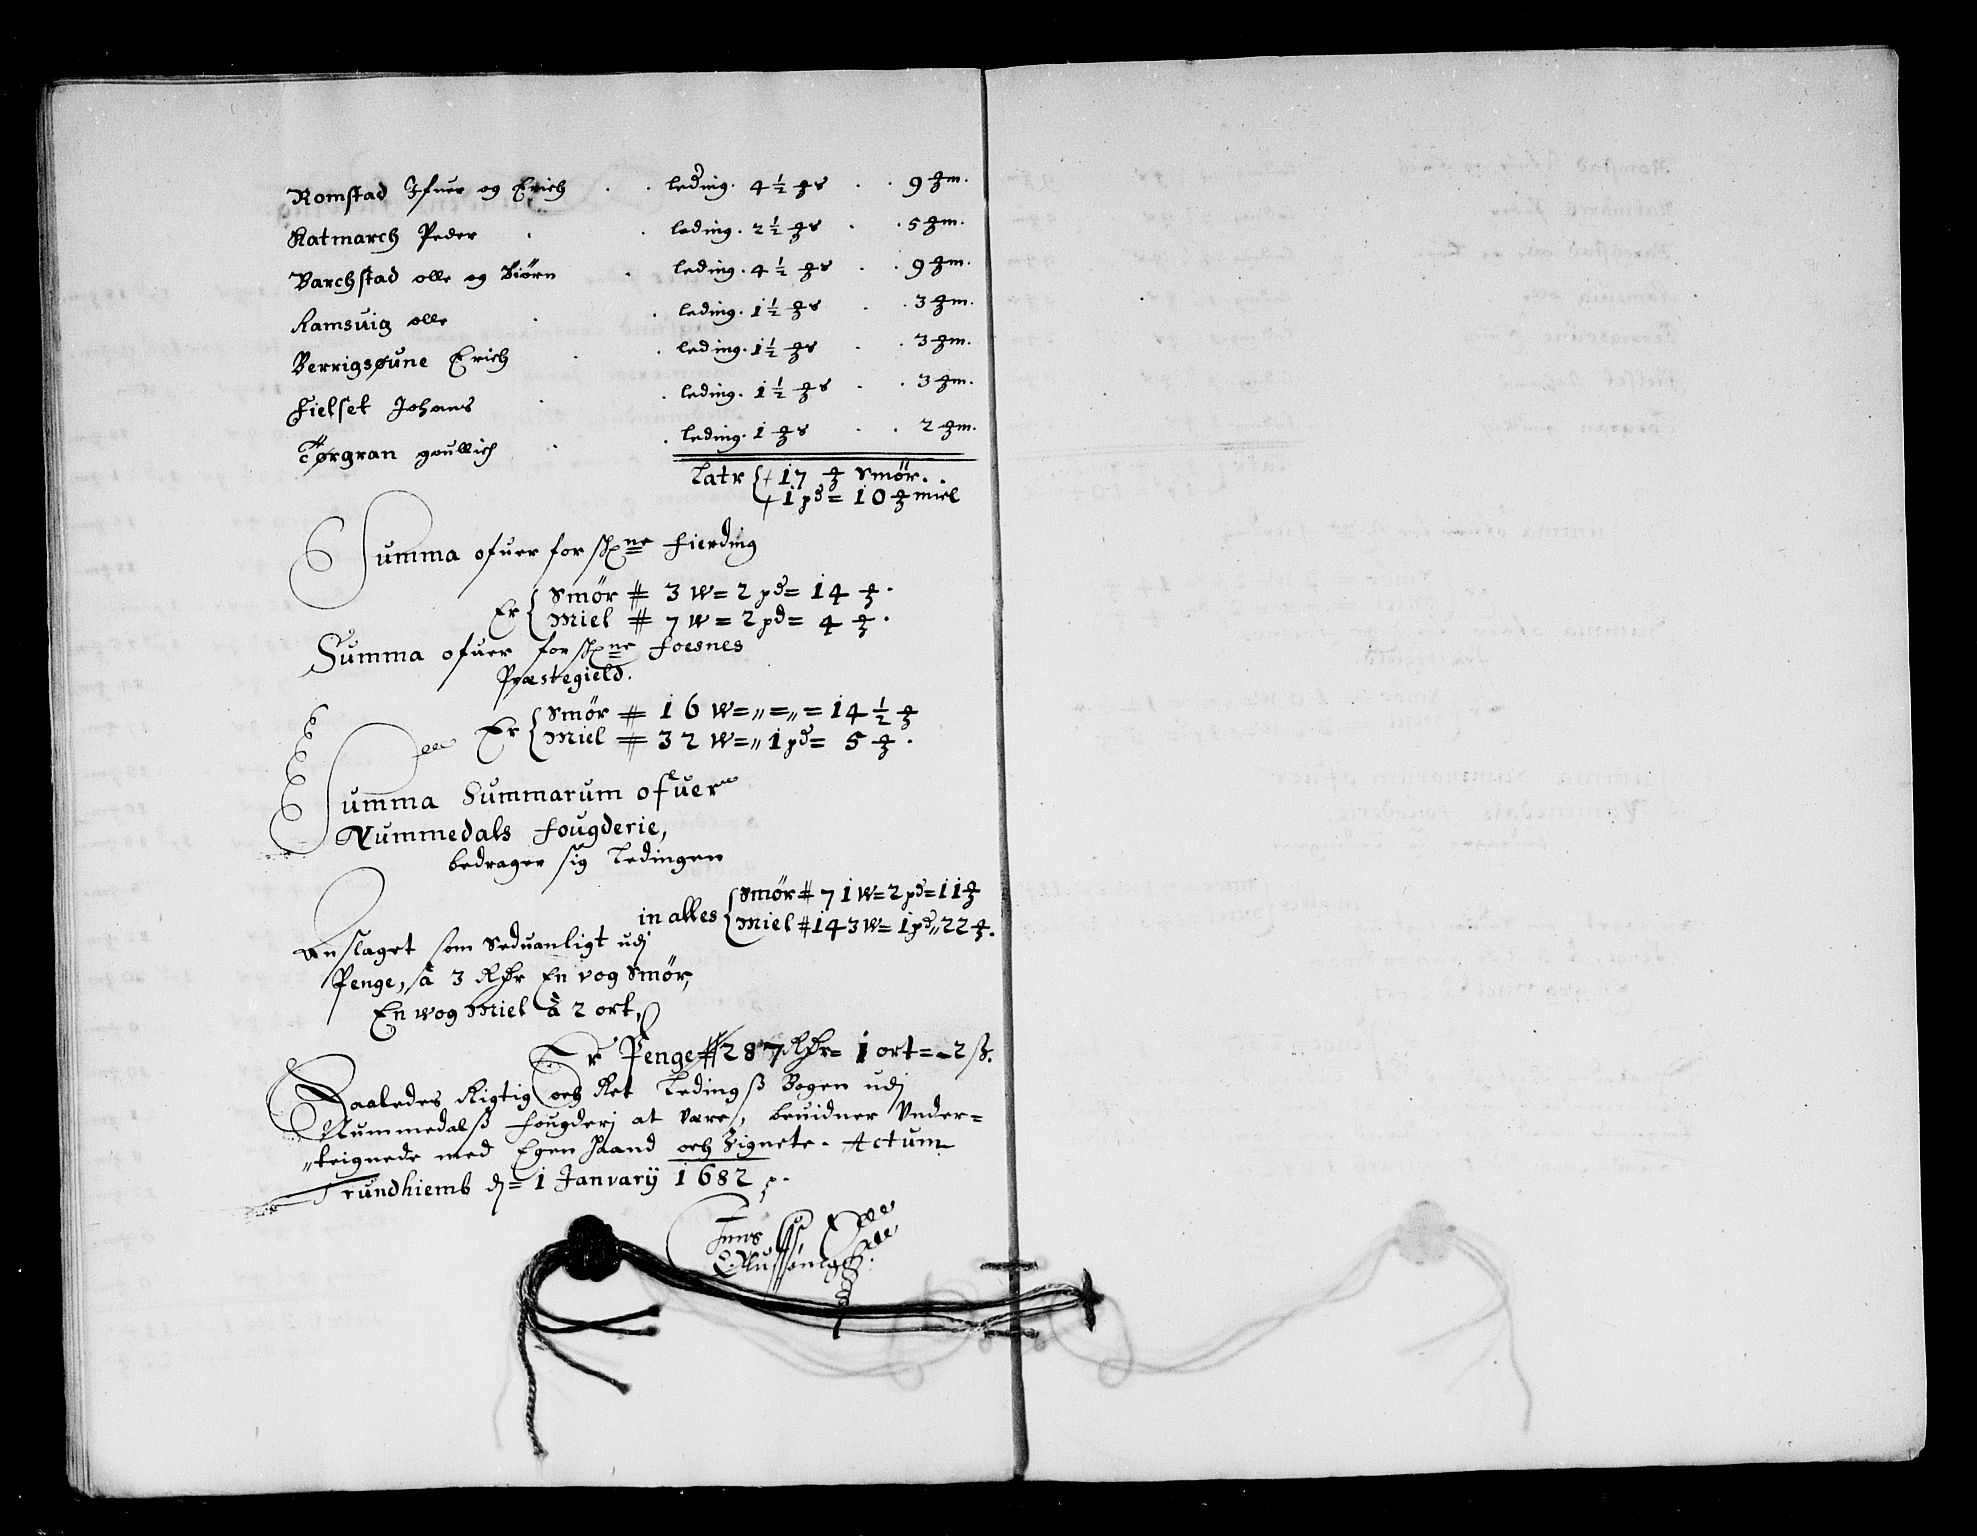 Romstad Ifuer og Erich . . leding. 4 ½ ℔ s . . 9 ℔ m.
Katmarch Peder . . leding. 2 ½ ℔ s . . 5 ℔ m.
Barchstad olle og Biörn . leding. 4 ½ ℔ s . . 9 ℔ m.
Ramsuig olle . . leding. 1 ½ ℔ s . . 3 ℔ m.
Berrigsøune Erich . . leding. 1 ½ ℔ s . . 3 ℔ m.
Fielset Johans . . leding. 1 ½ ℔ s . . 3 ℔ m.
Tørgran goullich . . leding. 1 ℔ s . . 2 ℔ m.
Latr { 17 ℔ Smör. .
1 pd = 10 ℔ miel
Summa ofuer forschne Fierding
Er { Smör # 3 W = 2 pd = 14 ℔.
Miel # 7 W = 2 pd = 4 ℔.
Summa ofuer forschne Foesnes
Præstegield.
Er { Smör # 16 W = „ = „ = 14 ½ ℔
Miel # 32 W = „ 1 pd = 5 ℔.
Summa Summarum ofuer
Nummedals Fougderie,
bedrager sig Ledingen
in alles { Smör # 71 W = 2 pd = 11 ℔
Miel # 143 W = 1 pd „ 22 ℔.
Anslaget som Seduanligt udj
Penge, â 3 Rdr En vog Smör,
En wog Miel â 2 ort,
Er Penge # 287 Rdr = 1 ort = - 2 ß.
Saaledes Rigtig och Ret Ledingß Bogen udj
Nummedalß Fougderj at være, beuidner Vnder=
„teignede med Egen Haand och Zignete. Actum
Trundhiemb d = 1 Januarij 1682
Jens